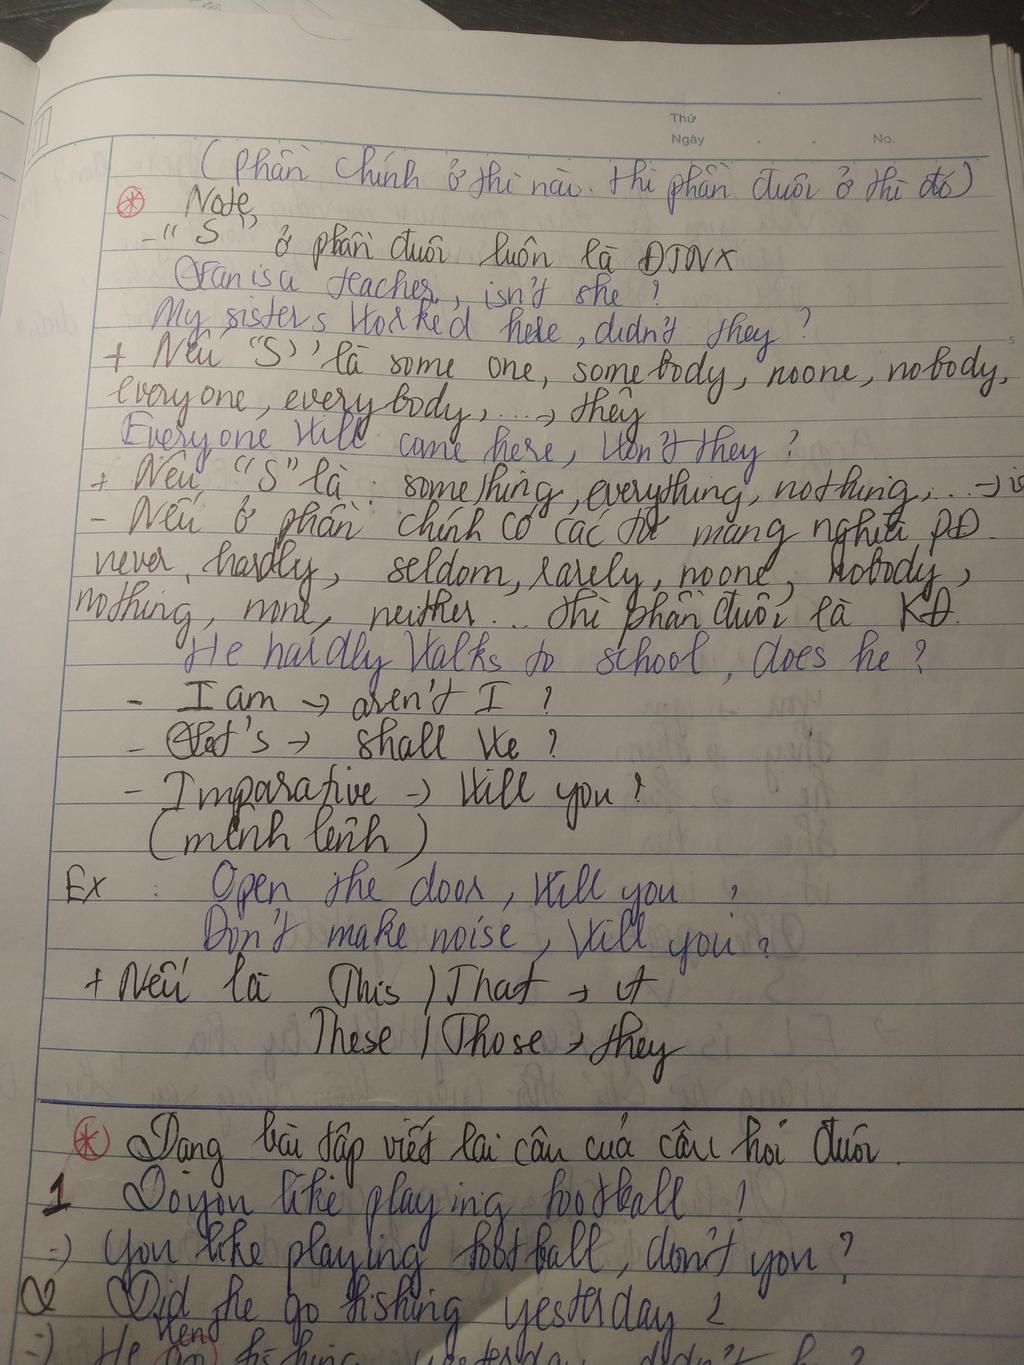 Thứ
Ngày . . No.
(Phần chính ở thì nào. thì phần đuôi ở thì đó)
* Note,
- "S" ở phần đuôi luôn là ĐTNX
is a teacher, isn't she ?
My sisters worked here, didn't they ?
+ Nếu "S" là some one, somebody, noone, nobody,
everyone, everybody, ... → they
Everyone will came here, won't they ?
+ Nếu "S" là : something, everything, nothing, ... →
- Nếu ở phần chính có các từ mang nghĩa PĐ.
never, hardly, seldom, rarely, noone, nobody,
nothing, none, neither... thì phần đuôi là KĐ.
He hardly walks to school, does he ?
- I am → aren't I ?
- Let's → shall we ?
- Imparative → will you ?
(mệnh lệnh)
Ex : Open the door, will you ?
Don't make noise, will you ?
+ Nếu là This / That → it
These / Those → they
* Dạng bài tập viết lại câu của câu hỏi đuôi.
1 Do you like playing football ?
=) You like playing football, don't you ?
2 Did he go fishing yesterday ?
=) He went fishing yesterday, didn't he ?